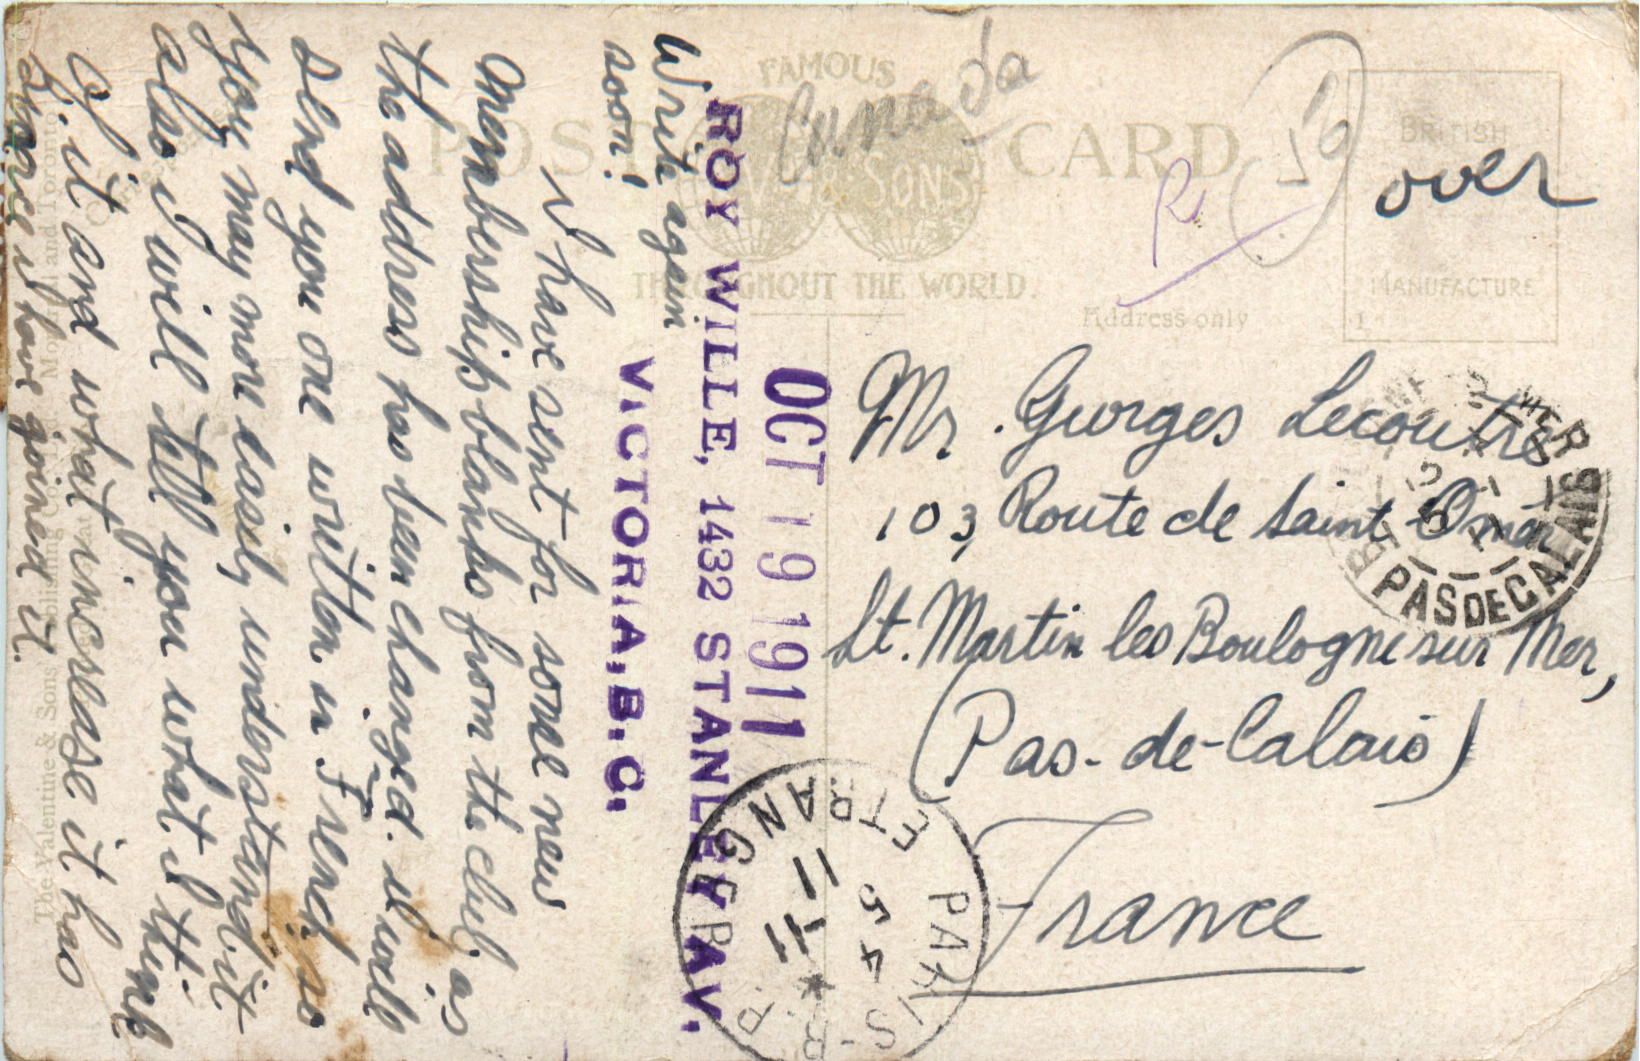 FAMOUS
Canada
POST CARD
& SONS
THROUGHOUT THE WORLD.
Address only
BRITISH
MANUFACTURE
over
Mr. Gurges Lecoutre
103, Route de Saint-Omer
St. Martin les Boulogne sur Mer,
(Pas-de-Calais)
France
PAS DE CALAIS
PARIS-R.P.
ETRANGER
OCT 19 1911
ROY WILLE, 1432 STANLEY AV.
VICTORIA, B.C.
Write again
soon!
I have sent for some new
membership blanks from the club, as
the address has been changed. I will
send you one written in French, so
you may more easily understand it
also I will tell you what I think
of it and what increase it has
since I have joined it.
The Valentine & Sons Publishing Co. Montreal and Toronto